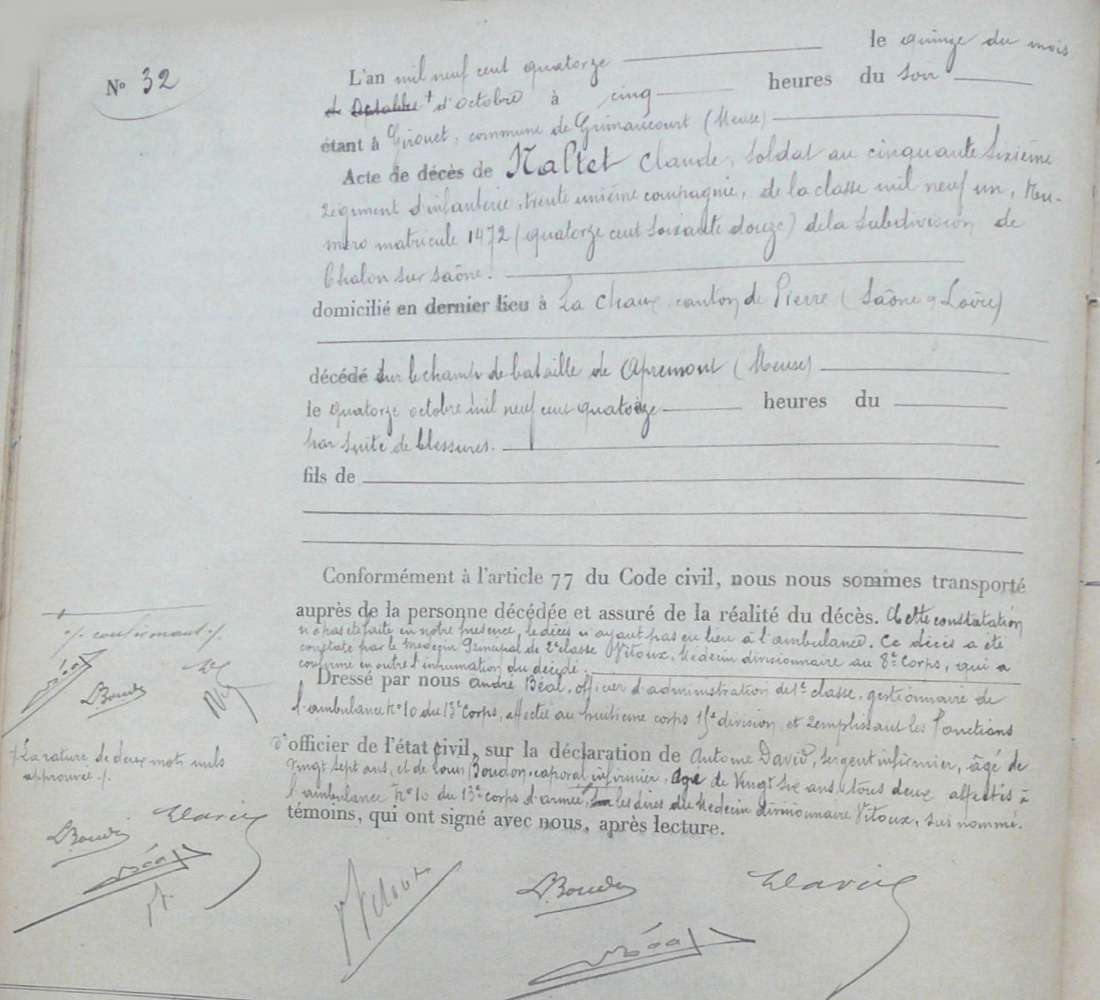 N° 32
L'an mil neuf cent quatorze le quinze du mois
d'octobre à cinq heures du soir
étant à Gironet, commune de Grimaucourt (Meuse)
Acte de décès de Naltet Claude, soldat au cinquante sixième
régiment d'infanterie, trente unième compagnie, de la classe mil neuf un, Nu-
méro matricule 1472 (quatorze cent soixante douze) de la subdivision de
Chalon sur Saône.
domicilié en dernier lieu à La Chaux canton de Pierre (Saône & Loire)
décédé sur le champ de bataille de Apremont (Meuse)
le quatorze octobre mil neuf cent quatorze heures du
par suite de blessures.
fils de
Conformément à l'article 77 du Code civil, nous nous sommes transporté
auprès de la personne décédée et assuré de la réalité du décès. Cette constatation
n'a pas été faite en notre présence, le décès n'ayant pas eu lieu à l'ambulance. Ce décès a été
constaté par le Médecin Principal de 2e classe Vitoux, Médecin divisionnaire au 8e Corps, qui a
confirmé en outre l'inhumation du décédé.
Dressé par nous André Béal, officier d'administration de 1e classe, gestionnaire de
l'ambulance N° 10 du 13e Corps, affectée au huitième corps division, et remplissant les fonctions
d'officier de l'état civil, sur la déclaration de Antoine David, sergent infirmier, âgé de
vingt sept ans, et de Louis Boudon, caporal infirmier, âgé de vingt six ans, tous deux affectés à
l'ambulance N° 10 du 13e corps d'armée, les dires du Médecin divisionnaire Vitoux, sus nommé.
témoins, qui ont signé avec nous, après lecture.
confirmant
Béal
LBoudon
+ La rature de deux mots nuls
approuvée
LBoudon David
Béal
Vitoux LBoudon David
Béal